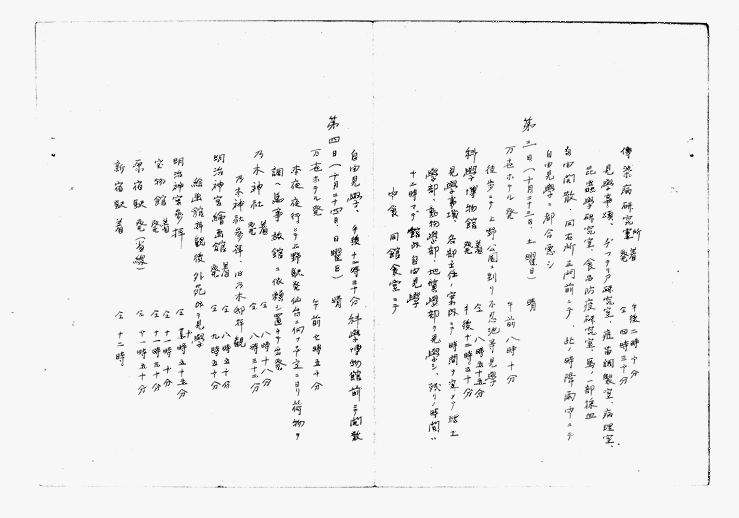 傳染病研究所 着 午後二時十分
発 仝 四時三十分
見學事項、ヂフテリア研究室、痘苗調製室、病理室、
昆蟲學研究室、食品防疫研究室、馬ノ一部採血
自由開散、同右所正門前ニテ、此ノ時降雨中ニテ
自由見學ニ都合悪シ
第三日(十月二十三日、土曜日) 晴
万世ホテル発 午前八時十分
徒歩ニテ上野公園ニ到リ不忍池等見學
科學博物館 着 仝 八時五十五分
発 午後十二時五十分
見學事項 各部主任ノ案内ニテ時間ヲ定メテ階上
學部、動物學部、地質學部ヲ見學シ、残リノ時間ハ
十二時マデ館内自由見學
中食 同館食堂ニテ
自由見學、午後十二時五十分科學博物館前ニテ開散
第四日(十月二十四日、日曜日) 晴
万世ホテル発 午前七時五十分
本夜夜行ニテ上野駅発仙台ニ向フ予定ニヨリ荷物ヲ
調ヘ萬事旅館ニ依頼シ置キテ出発
乃木神社 着 仝 八時十八分
発 仝 八時三十分
乃木神社参拝、旧乃木邸拝観
明治神宮繪画館 着 仝 八時五十分
発 仝 九時五十分
絵画館拝観後外苑内ヲ見學
明治神宮参拝 仝 十時五十五分
宝物館 着 仝 十一時十分
発 仝 十一時三十分
原宿駅 発(省線) 仝 十一時五十分
新宿駅 着 仝 十二時